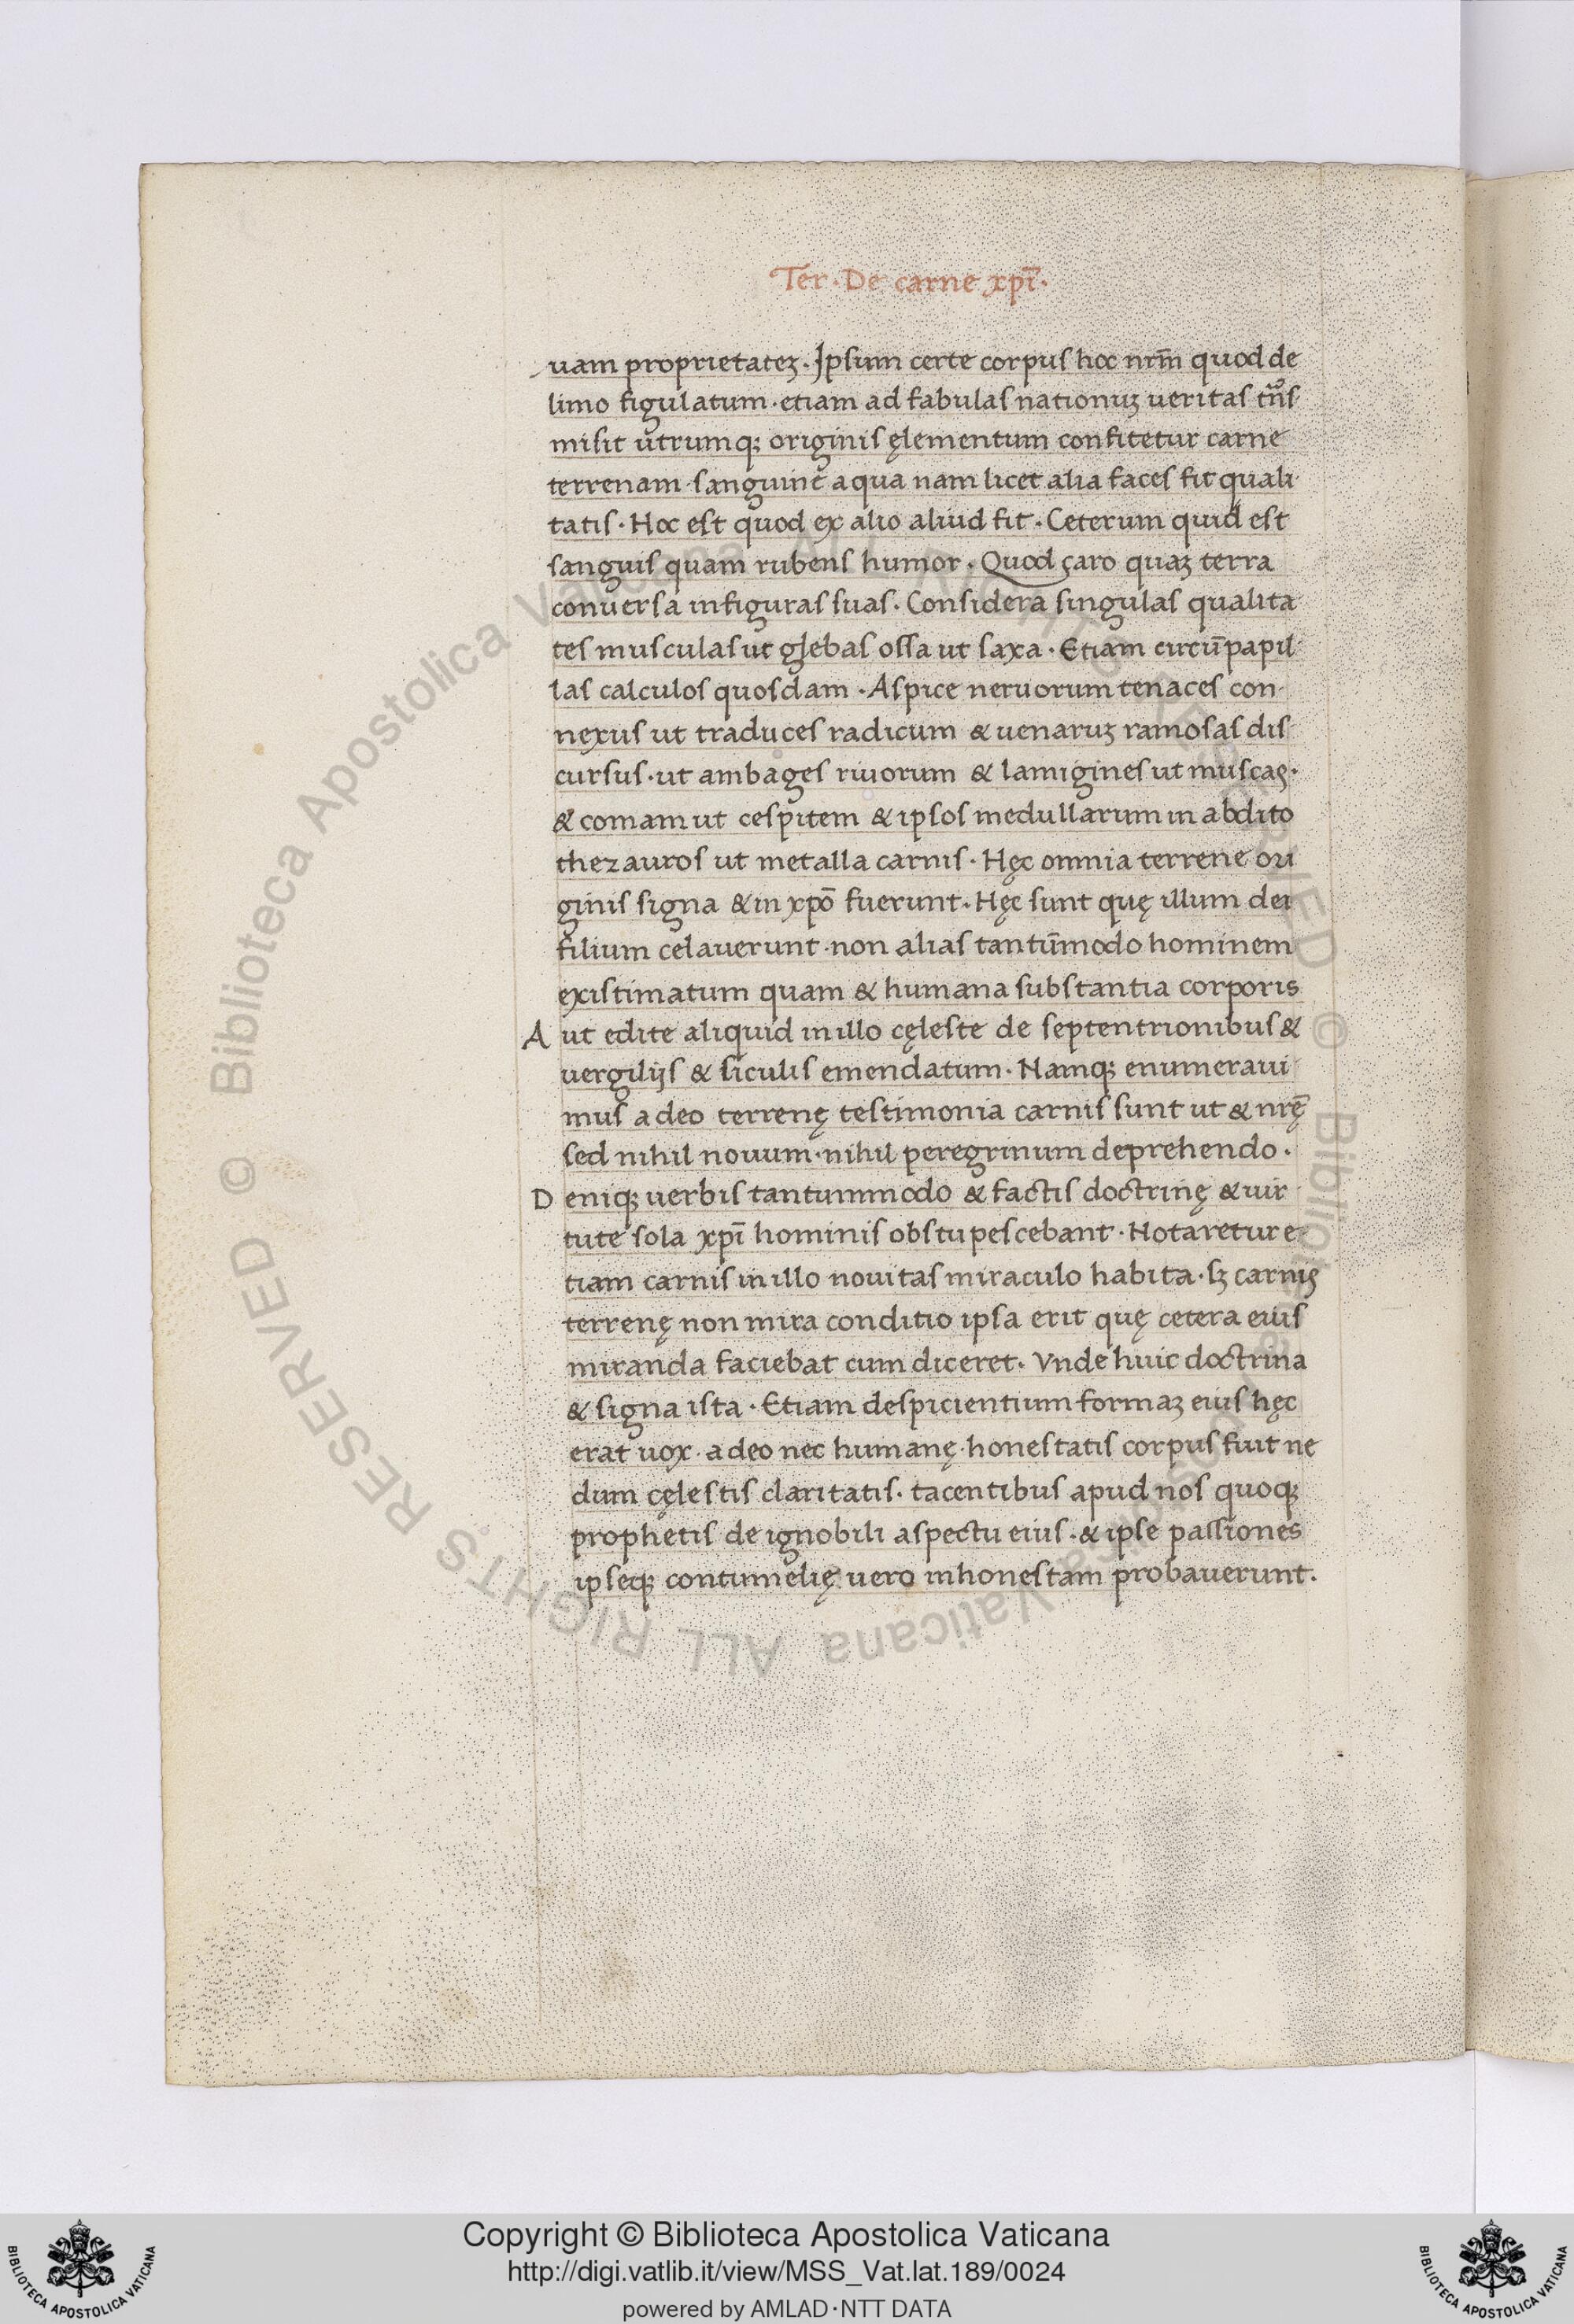 Ter · De carne xpī ·
uam proprietateʒ · Ipsum certe corpus hoc nrm̄ quod de
limo figulatum · etiam ad fabulas nationuʒ ueritas
misit utrumqʒ originis ęlementum confitetur carne
terrenam · sanguine aqua nam licet alia faces fit quali
tatis · Hoc est quod ex alio aliud fit · Ceterum quid est
sanguis quam rubens humor · Quod caro quaʒ terra
conuersa in figuras suas · Considera singulas qualita
tes musculas ut glebas ossa ut saxa · Etiam circū papil
las calculos quosdam · Aspice neruorum tenaces con
nexus ut traduces radicum & uenaruʒ ramosas dis
cursus · ut ambages riuorum & lamigines ut muscas ·
& comam ut cespitem & ipsos medullarum in abdito
thezauros ut metalla carnis · Hęc omnia terrene ori
ginis signa & in xpō fuerunt · Hęc sunt quę illum dei
filium celauerunt · non alias tantūmodo hominem
existimatum quam & humana substantia corporis
Aut edite aliquid in illo cęleste de septentrionibus &
uergilijs & siculis emendatum · Namqʒ enumeraui
mus adeo terrenę testimonia carnis sunt ut & nrę̄
sed nihil nouum · nihil peregrinum deprehendo ·
Deniqʒ uerbis tantummodo & factis doctrinę & uir
tute sola xpī hominis obstupescebant · Notaretur e
tiam carnis in illo nouitas miraculo habita · sʒ carnis
terrenę non mira conditio ipsa erit quę cetera eius
miranda faciebat cum diceret · Vnde huic doctrina
& signa ista · Etiam despicientium formaʒ eius hęc
erat uox · adeo nec humanę · honestatis corpus fuit ne
dum cęlestis claritatis · tacentibus apud nos quoqʒ
prophetis de ignobili aspectu eius · & ipse passiones
ipseqʒ contumelię uero inhonestam probauerunt ·
© Biblioteca Apostolica Vaticana ALL RIGHTS RESERVED © Biblioteca Apostolica Vaticana ALL RIGHTS RESERVED
Copyright © Biblioteca Apostolica Vaticana
http://digi.vatlib.it/view/MSS_Vat.lat.189/0024
powered by AMLAD·NTT DATA
BIBLIOTECA APOSTOLICA VATICANA
BIBLIOTECA APOSTOLICA VATICANA